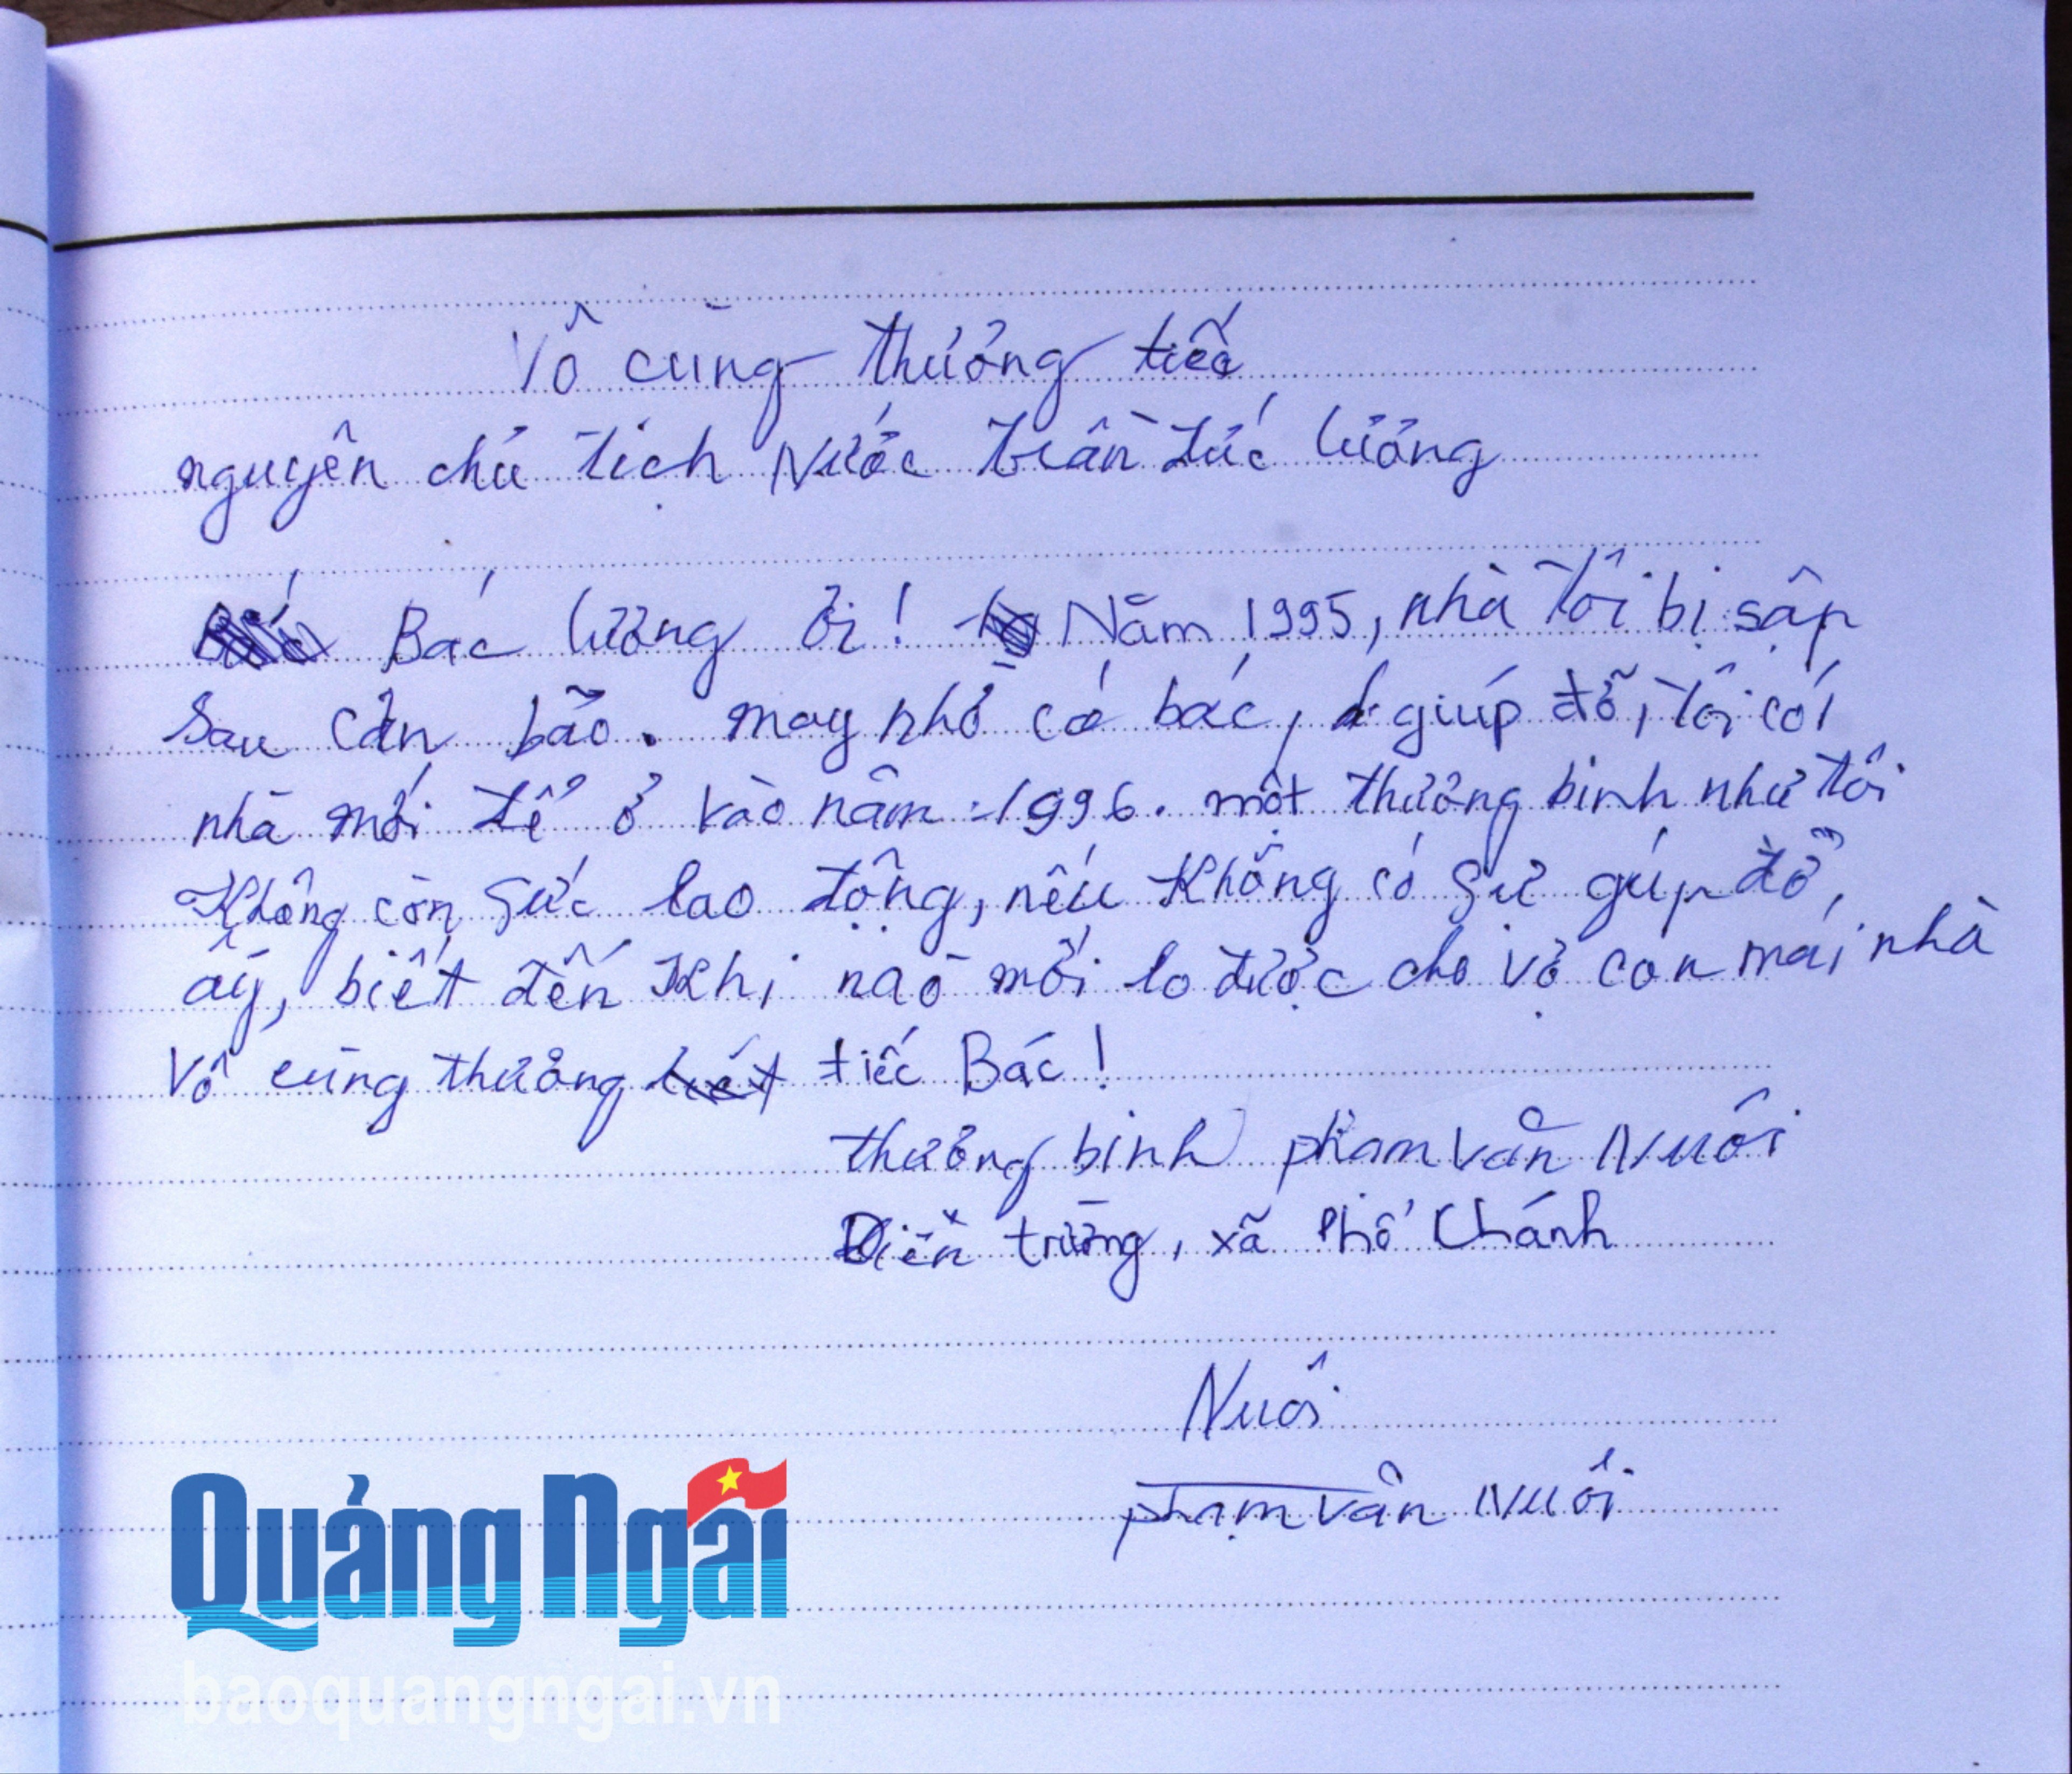 Vô cùng thương tiếc
nguyên chủ tịch Nước trần đức lương
Bác lương ơi! Năm 1995, nhà tôi bị sập
Sau cơn bão. may nhờ có bác, giúp đỡ, tôi có
nhà mới để ở vào năm 1996. một thương binh như tôi
Không còn sức lao động, nếu Không có sự gúp đỡ,
ấy, biết đến Khi nào mới lo được cho vợ con mái nhà
Vô cùng thương tiếc Bác!
thương binh phạm văn Nuôi
Diên trường, xã Phổ Chánh
Nuôi
phạm văn Nuôi
Quảng Ngãi
baoquangngai.vn